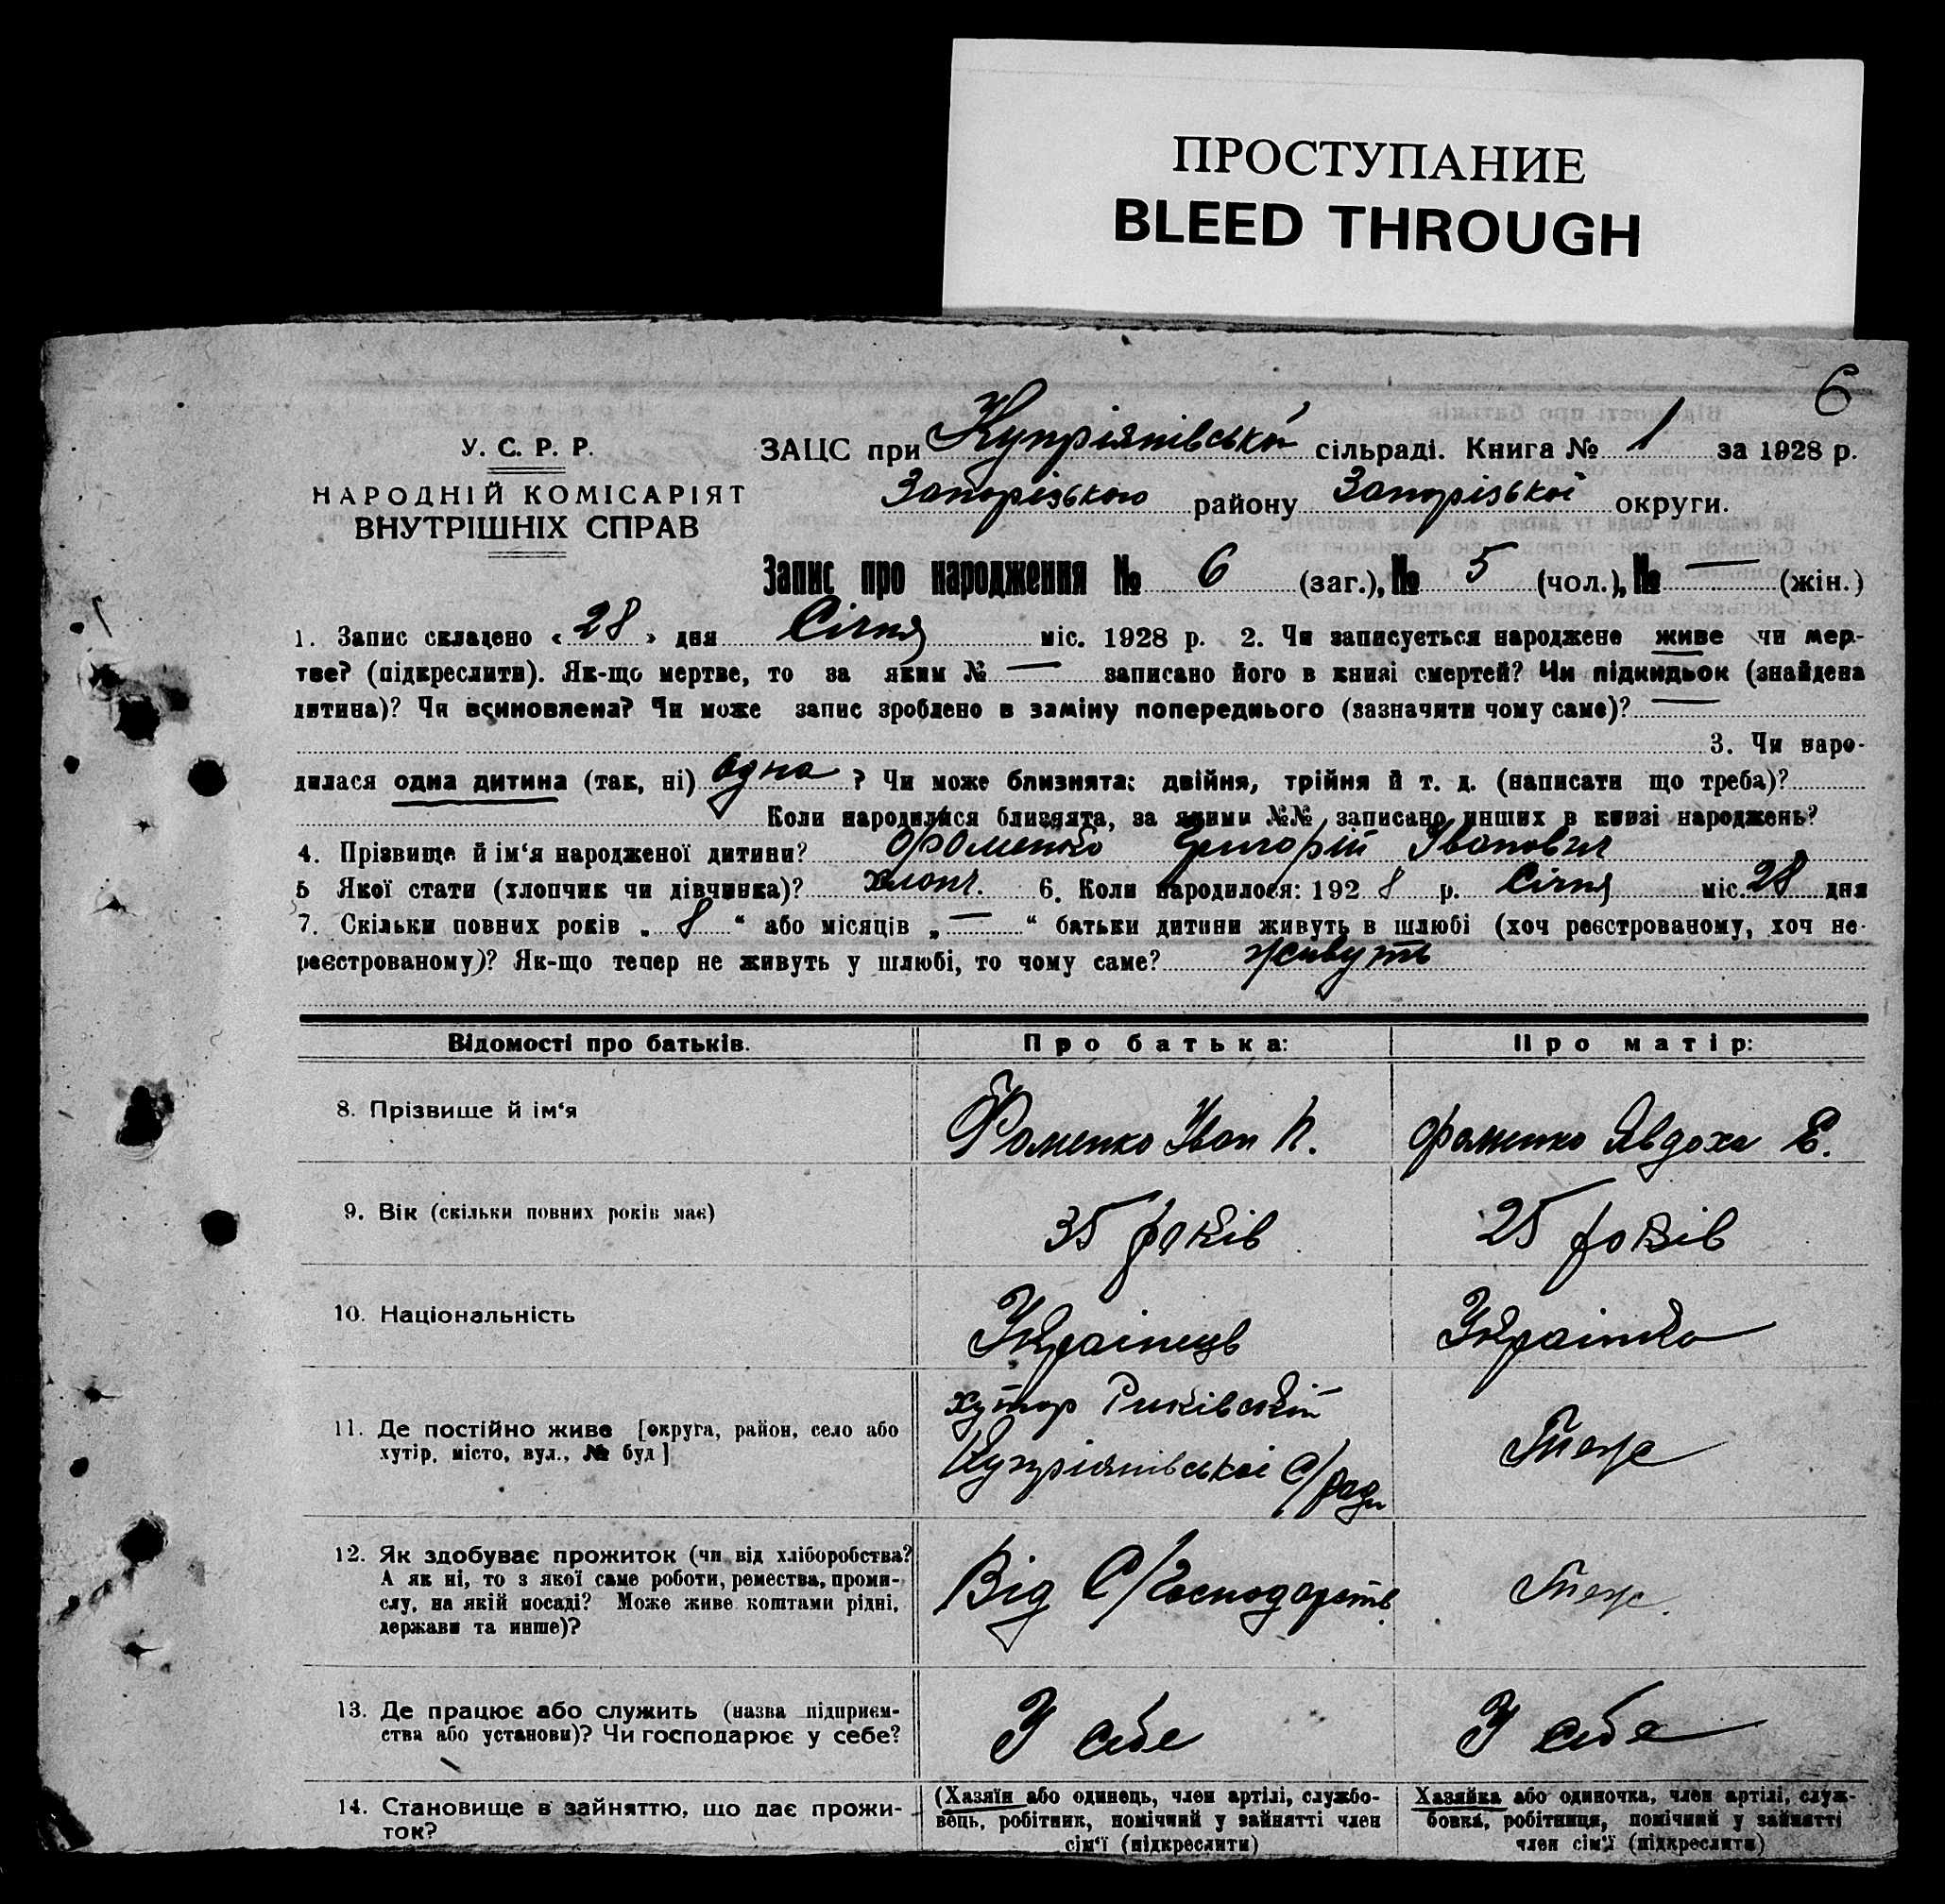 ПРОСТУПАНИЕ
BLEED THROUGH
6
У. С. Р. Р.
НАРОДНІЙ КОМІСАРІЯТ
ВНУТРІШНІХ СПРАВ
ЗАЦС при Купріянівській сільраді. Книга № 1 за 1928 р.
Запорізького району Запорізької округи.
Запис про народження № 6 (заг.), № 5 (чол.), № — (жін.)
1. Запис складено « 28 » дня Січня міс. 1928 р. 2. Чи записується народжене живе чи мер-
тве? (підкреслити). Як-що мертве, то за яким № — записано його в книзі смертей? Чи підкидьок (знайдена
дитина)? Чи всиновлена? Чи може запис зроблено в заміну попереднього (зазначити чому саме)? —
3. Чи наро-
дилася одна дитина (так, ні) одна ? Чи може близнята: двійня, трійня й т. д. (написати що треба)?
Коли народилися близнята, за якими №№ записано инших в книзі народжень?
4. Прізвище й ім'я народженої дитини? Фоменко Григорій Іванович
5 Якої стати (хлопчик чи дівчинка)? хлопч. 6. Коли народилося: 192 8 р. Січня міс. 28 дня
7. Скільки повних років „ 8 “ або місяців „ — “ батьки дитини живуть в шлюбі (хоч реєстрованому, хоч не-
реєстрованому)? Як-що тепер не живуть у шлюбі, то чому саме? живуть
Відомості про батьків. Про батька: Про матір:
8. Прізвище й ім'я Фоменко Іван П. Фоменко Явдоха Е.
9. Вік (скільки повних років має) 35 років 25 років
10. Національність Українець Українка
11. Де постійно живе [округа, район, село або
хутір, місто, вул., № буд]
хутор
Купріянівської С/ради
Теж
12. Як здобуває прожиток (чи від хліборобства?
А як ні, то з якої саме роботи, ремества, проми-
слу, на якій посаді? Може живе коштами рідні,
держави та инше)?
Від С/Господарств.
Теж
13. Де працює або служить (назва підприєм-
ства або установи)? Чи господарює у себе?
У себе
У себе
14. Становище в зайняттю, що дає прожи-
ток?
(Хазяїн або одинець, член артілі, службо-
вець, робітник, помічний у зайнятті член
сім'ї (підкреслити)
Хазяйка або одиночка, член артілі, служ-
бовка, робітниця, помічний у зайнятті
член сім'ї (підкреслити)